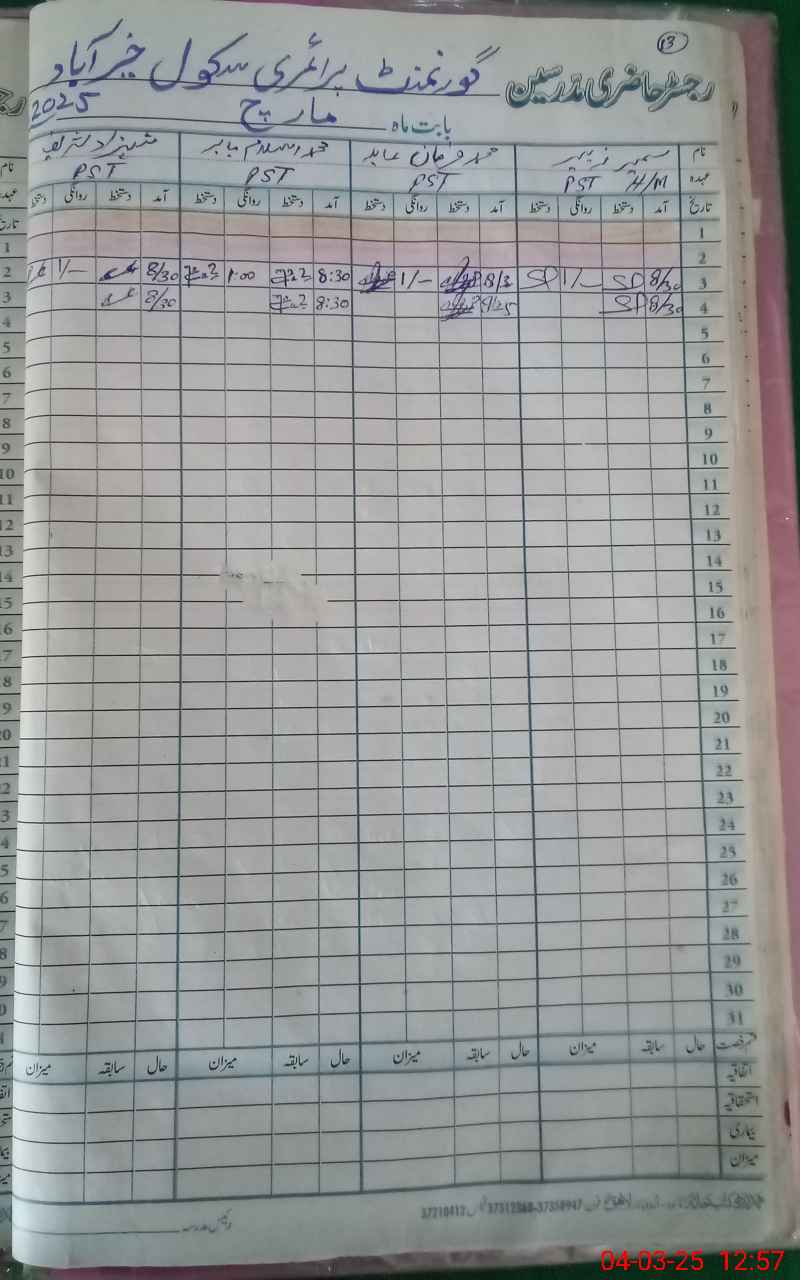 13
رجسٹر حاضری مدرسین گورنمنٹ پرائمری سکول خیرآباد
بابت ماہ مارچ 2025
نام سمیر زبیر محمد فرمان عابد محمد اسلام صابر شہزاد شریف
عہدہ PST H/M PST PST PST
تاریخ آمد دستخط روانگی دستخط آمد دستخط روانگی دستخط آمد دستخط روانگی دستخط آمد دستخط روانگی دستخط
1
2
3 8/30 SP 1/- SP 8/3 1/- 8:30 1:00 8/30 1/-
4 8/30 SP 8/25 8:30 8/30
5
6
7
8
9
10
11
12
13
14
15
16
17
18
19
20
21
22
23
24
25
26
27
28
29
30
31
قسم رخصت حال سابقہ میزان حال سابقہ میزان حال سابقہ میزان حال سابقہ میزان
اتفاقیہ
استحقاقیہ
بیماری
میزان
37210412 37312868-37358947
04-03-25 12:57